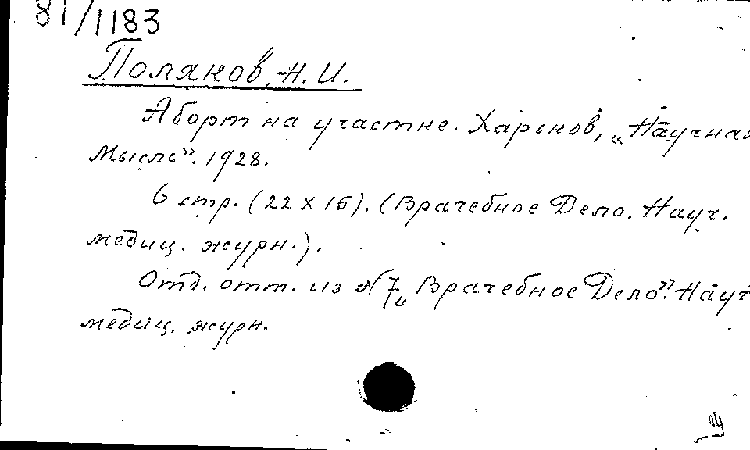 81/1183
Поляков, Н. И.
Аборт на участке. Харьков, „Научная
Мысль". 1928.
6 стр. (22 х 15). (Врачебное Дело. Науч.
медиц. журн.).
Отд. отт. из № 7 „Врачебное Дело". Науч
медиц. журн.